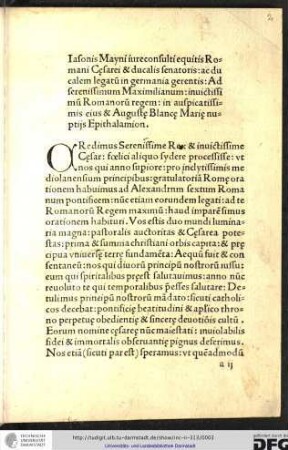 Iasonis Mayni iureconsulti equitis Ro-
mani Cęsarei & ducalis senatoris: ac du
calem legatũ in germania gerentis: Ad
serenissimum Maximilianum: inuictissi
mũ Romanorũ regem: in auspicatissi-
mis eius & Augustę Blancę Marię nu-
ptijs Epithalamion.
CRedimus Serenissime Rex & inuictissime
Cęsar: fœlici aliquo sydere processisse: vt
nos qui anno supiore: pro inclytissimis me
diolanensium principibus: gratulatoriã Romę ora
tionem habuimus ad Alexandrum sextum Roma
num pontificem: nũc etiam eorundem legati: ad te
Romanorũ Regem maximũ: haud imparẽ simus
orationem habituri. Vos estis duo mundi lumina
ria magna: pastoralis auctoritas & Cęsarea pote
stas: prima & summa christiani orbis capita: & prę
cipua vniuersę terrę fundamẽta: Aequũ fuit & con
sentaneũ: nos qui diuorũ principũ nostrorũ iussu:
eum qui spiritualibus pręest salutauimus: anno nũc
reuoluto te qui temporalibus pręsses salutare: De-
tulimus principũ nostrorũ mãdato: sicuti catholi-
cos decebat: pontificię beatitudini & aplico thro-
no perpetuę obedientię & syncerę deuotiõis cultũ.
Eorum nomine cęsareę nũc maiestati: inuiolabilis
fidei & immortalis obseruantię pignus deferimus.
Nos etiã (sicuti par est) speramus: vt quẽadmodũ
a ij
http://tudigit.ulb.tu-darmstadt.de/show/inc-iii-113/0003
Universitäts- und Landesbibliothek Darmstadt
DFG